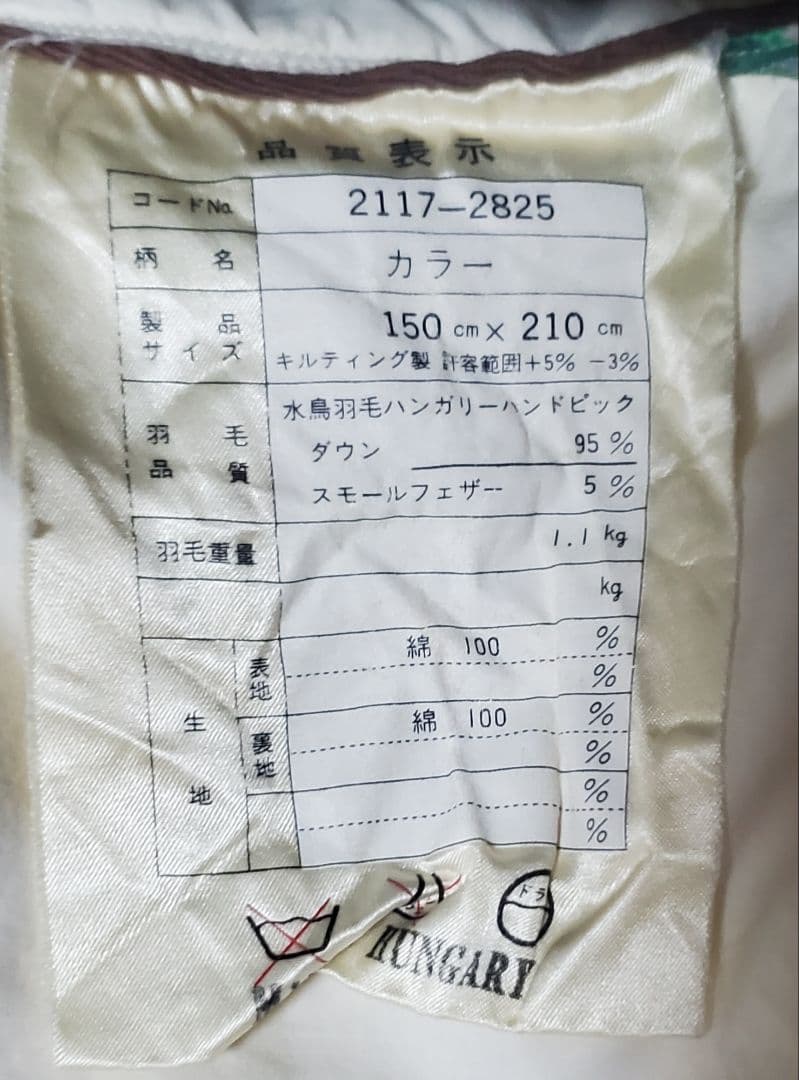 品質表示
コードNo. 2117-2825
柄名 カラー
製品サイズ 150cm×210cm
キルティング製 許容範囲+5% -3%
羽毛品質 水鳥羽毛ハンガリーハンドピック
ダウン 95%
スモールフェザー 5%
羽毛重量 1.1kg
kg
生地 表地 綿 100 %
%
裏地 綿 100 %
%
%
%
ドラ
HUNGARY